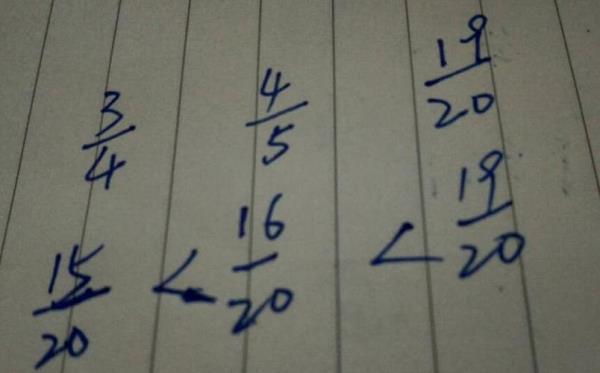 3/4 4/5 19/20
15/20 < 16/20 < 19/20